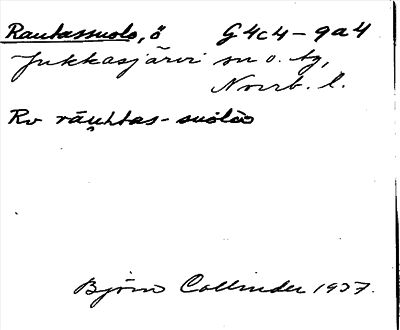 Rautassuolo, ö G4c4-9a4
Jukkasjärvi sn o. tg,
Norrb. l.
Rv räu̯htas-suolo
Björn Collinder 1937.